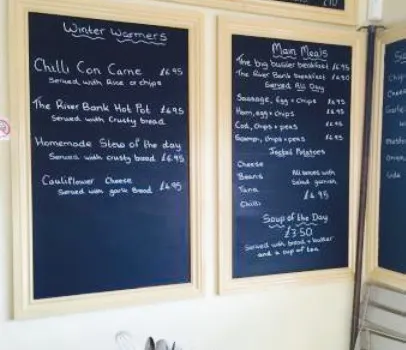 Winter Warmers
Chilli Con Carne £6.95
Served with Rice or chips
The River Bank Hot Pot £6.95
Served with Crusty bread
Homemade Stew of the day
Served with crusty bread £6.95
Cauliflower Cheese
Served with garlic Bread £6.95
Main Meals
The big butler breakfast £6.95
The River Bank breakfast £4.90
Served All Day
Sausage, Egg + Chips £6.95
Ham, egg + chips £6.95
Cod, Chips + peas £6.95
Scampi, chips + peas £6.95
Jacket Potatoes
Cheese
Beans All served with
Tuna Salad garnish
Chilli £4.95
Soup of the Day
£3.50
Served with bread + butter
and a cup of tea